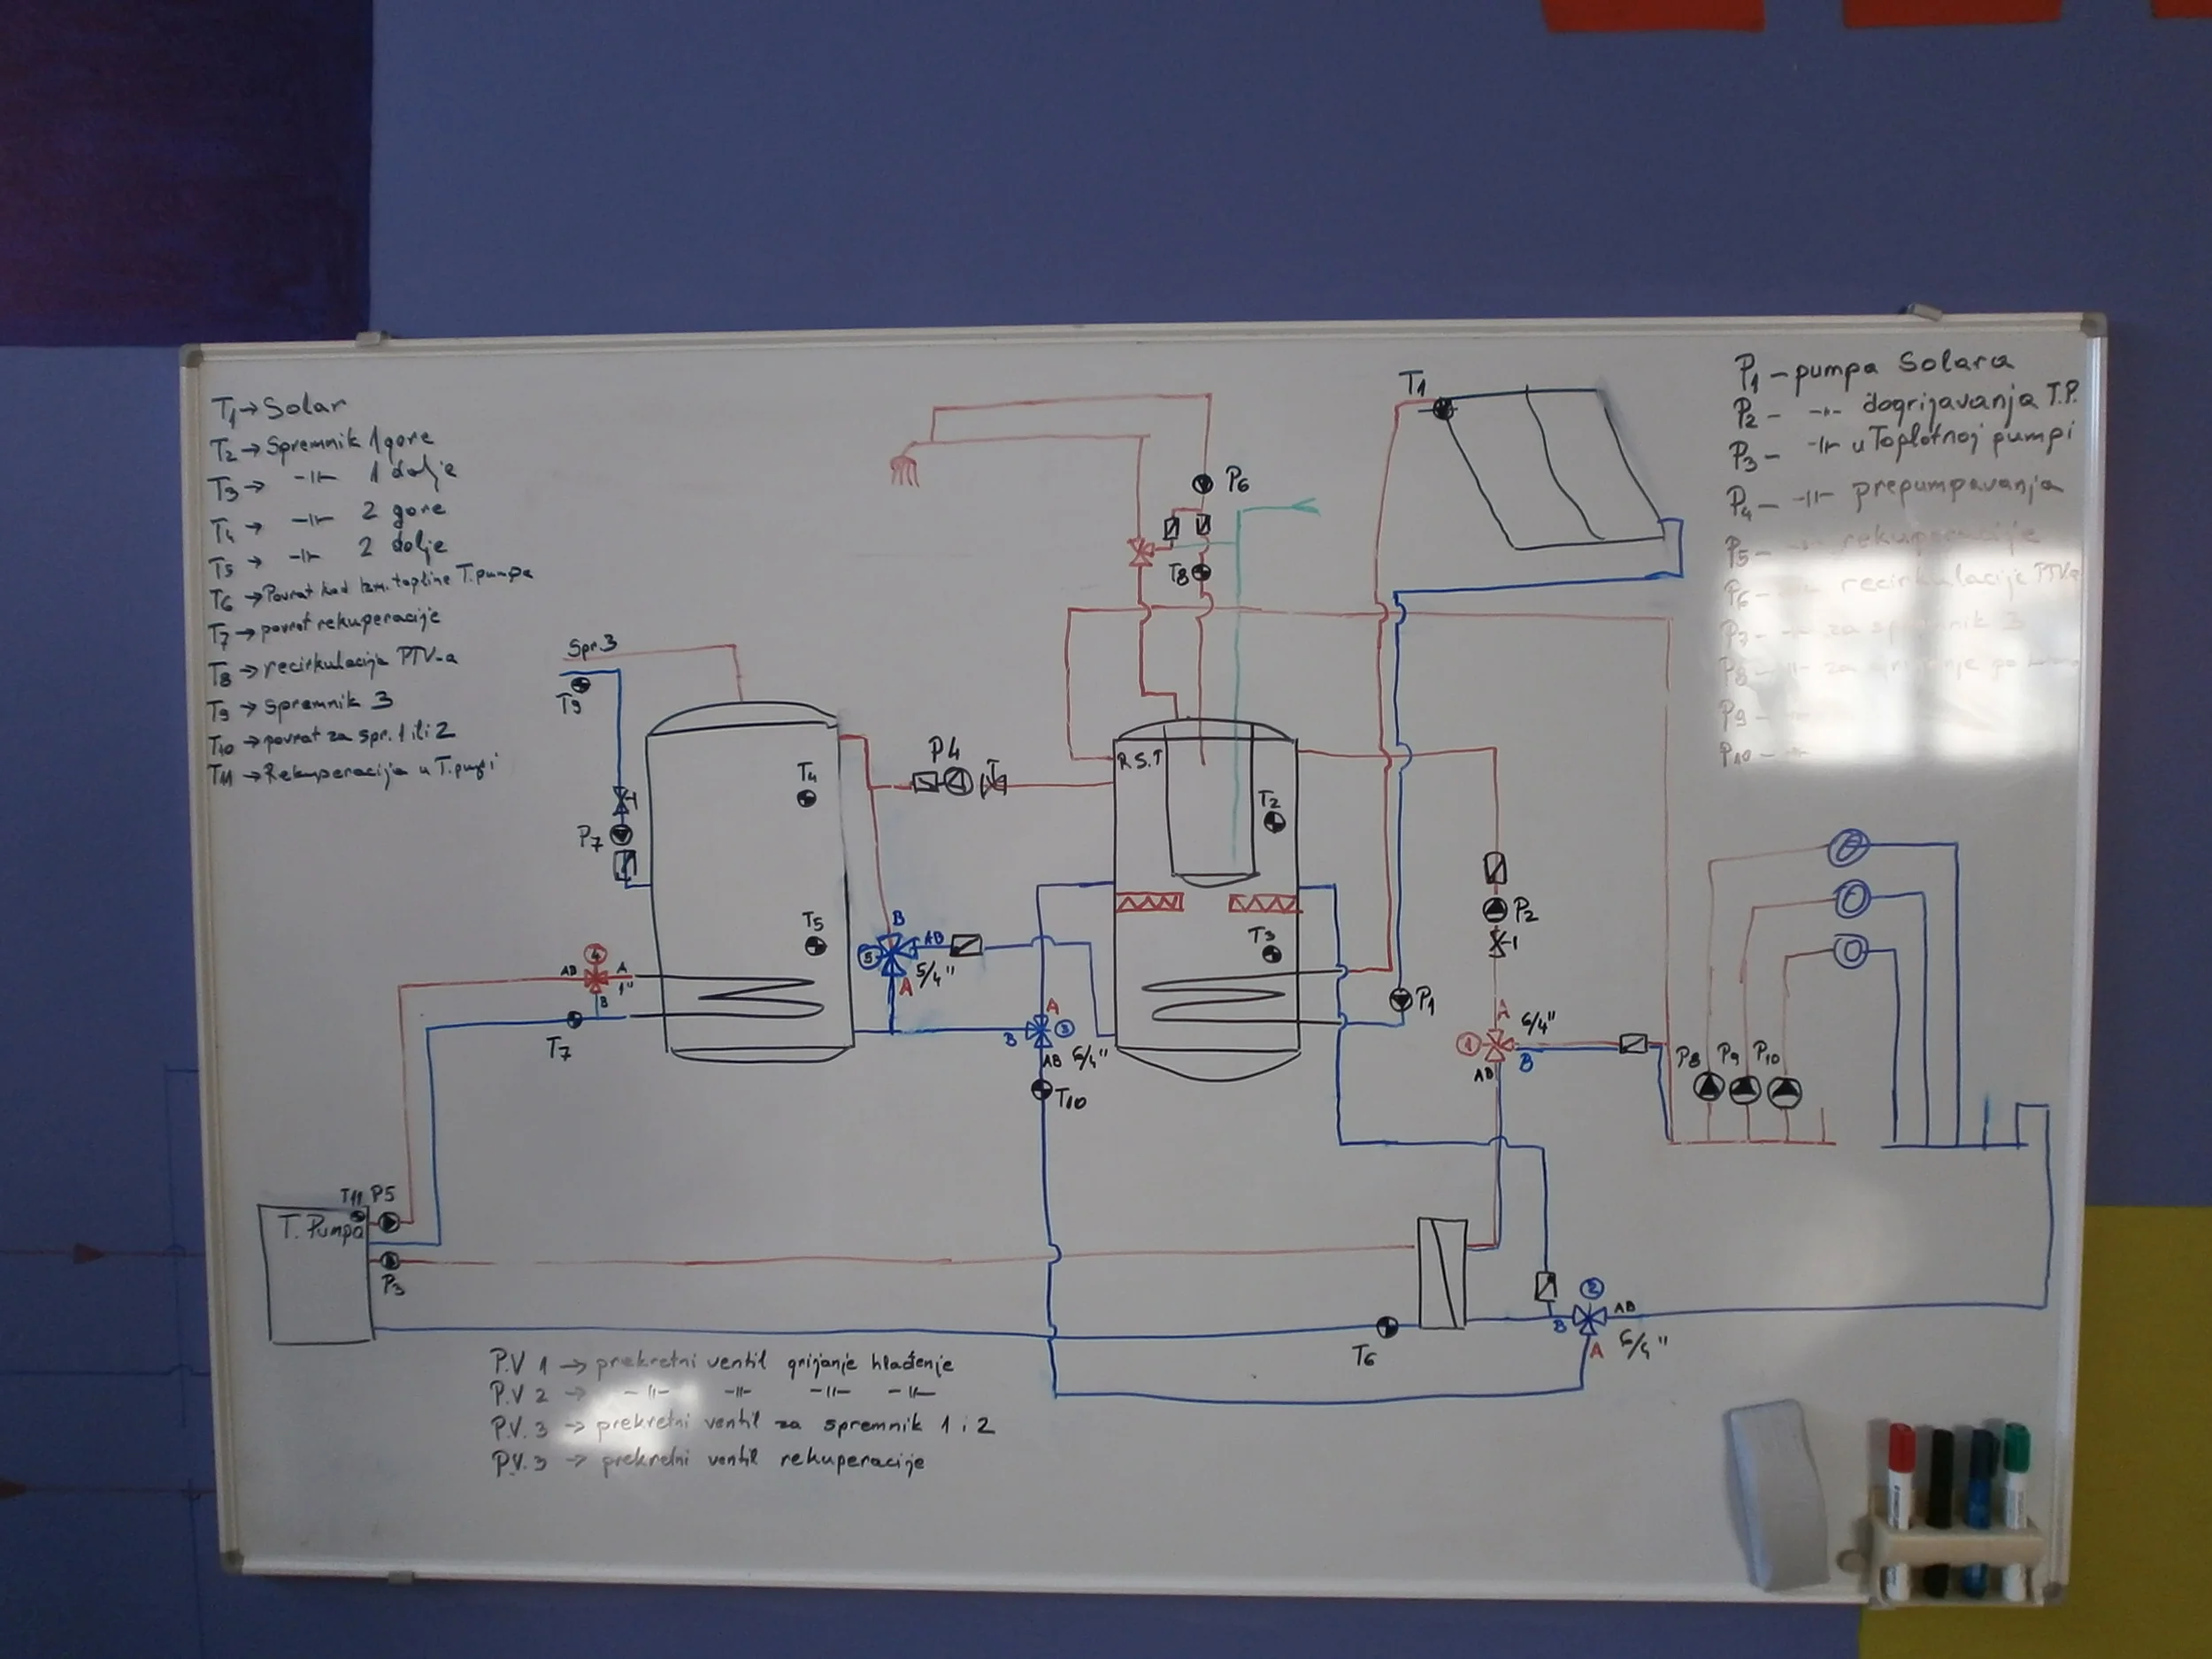 T1 → Solar
T2 → Spremnik 1 gore
T3 → -11- 1 dolje
T4 → -11- 2 gore
T5 → -11- 2 dolje
T6 → Povrat kad izm. topline T. pumpa
T7 → povrat rekuperacije
T8 → recirkulacija PTV-a
T9 → spremnik 3
T10 → povrat za spr. 1 ili 2
T11 → Rekuperacija u T. pumpi
P1 - pumpa Solara
P2 - -11- dogrijavanja T.P.
P3 - -11- u Toplotnoj pumpi
P4 - -11- prepumpavanja
P5 - -11- rekuperacije
P6 - -11- recirkulacije PTV-a
P7 - -11- za spremnik 3
P8 - -11- za grijanje po
P9 -
P10 -
T1
P6
T8
Spr.3
T9
P7
T4
P4
R.S.T
T2
T5
T3
B
AB
5
5/4"
A
P2
P1
4
AB
A
1"
B
T7
A
B
3
AB
5/4"
T10
A
5/4"
1
B
AB
P8
P9
P10
T11 P5
T. Pumpa
P3
T6
2
AB
B
A
5/4"
P.V 1 → prekretni ventil grijanje hlađenje
P.V 2 → -11- -11- -11- -11-
P.V. 3 → prekretni ventil za spremnik 1 i 2
P.V. 3 → prekretni ventil rekuperacije